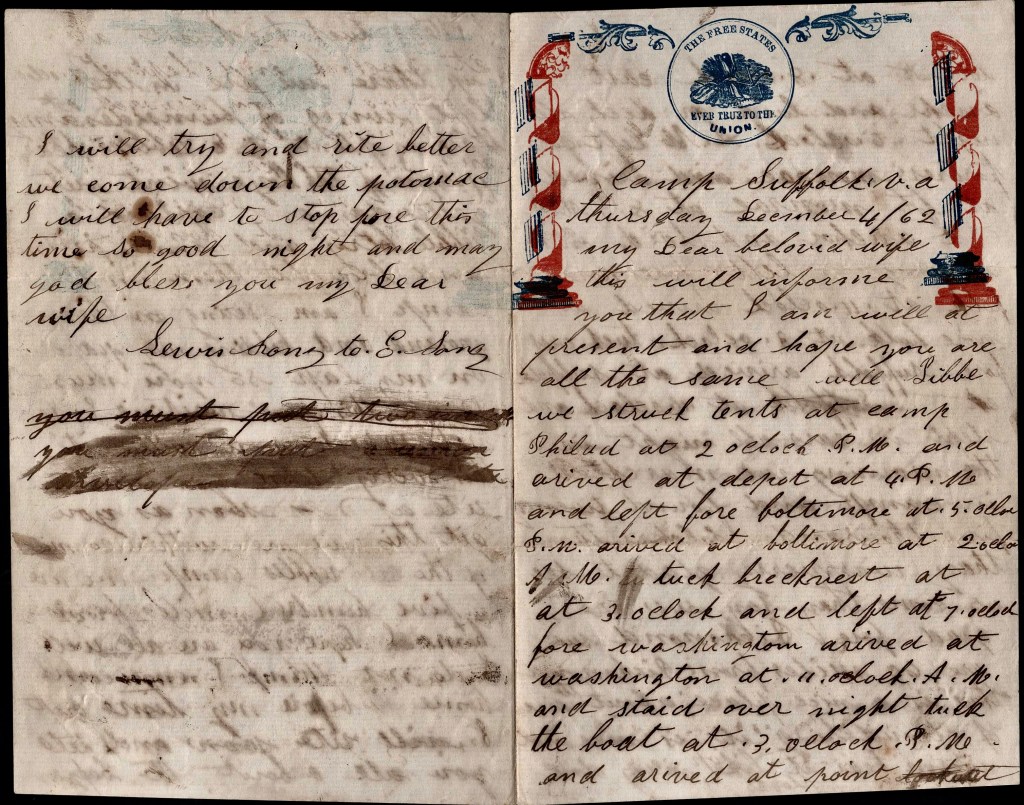 I will try and rite better
we come down the potomac
I will have to stop fore this
time so good night and may
god bless you my Dear
wife
Lewis Long to. E. Long
you must put
you must
THE FREE STATES
EVER TRUE TO THE
UNION.
Camp Suffolk. v. a
thursday December 4/62
my Dear belovid wife
this will informe
you that I am will at
present and hope you are
all the same will Libbe
we struck tents at camp
Philad at 2 oclock P.M. and
arived at depot at 4. P. M
and left fore boltimore at. 5. oclo
P. M. arived at boltimore at 2. oclo
A. M. tuck breckvest at
at 3. oclock and left at 7. oclock
fore washington arived at
washington at. 11. oclock. A. M.
and staid over night tuck
the boat at. 3. oclock. P. M
and arived at point